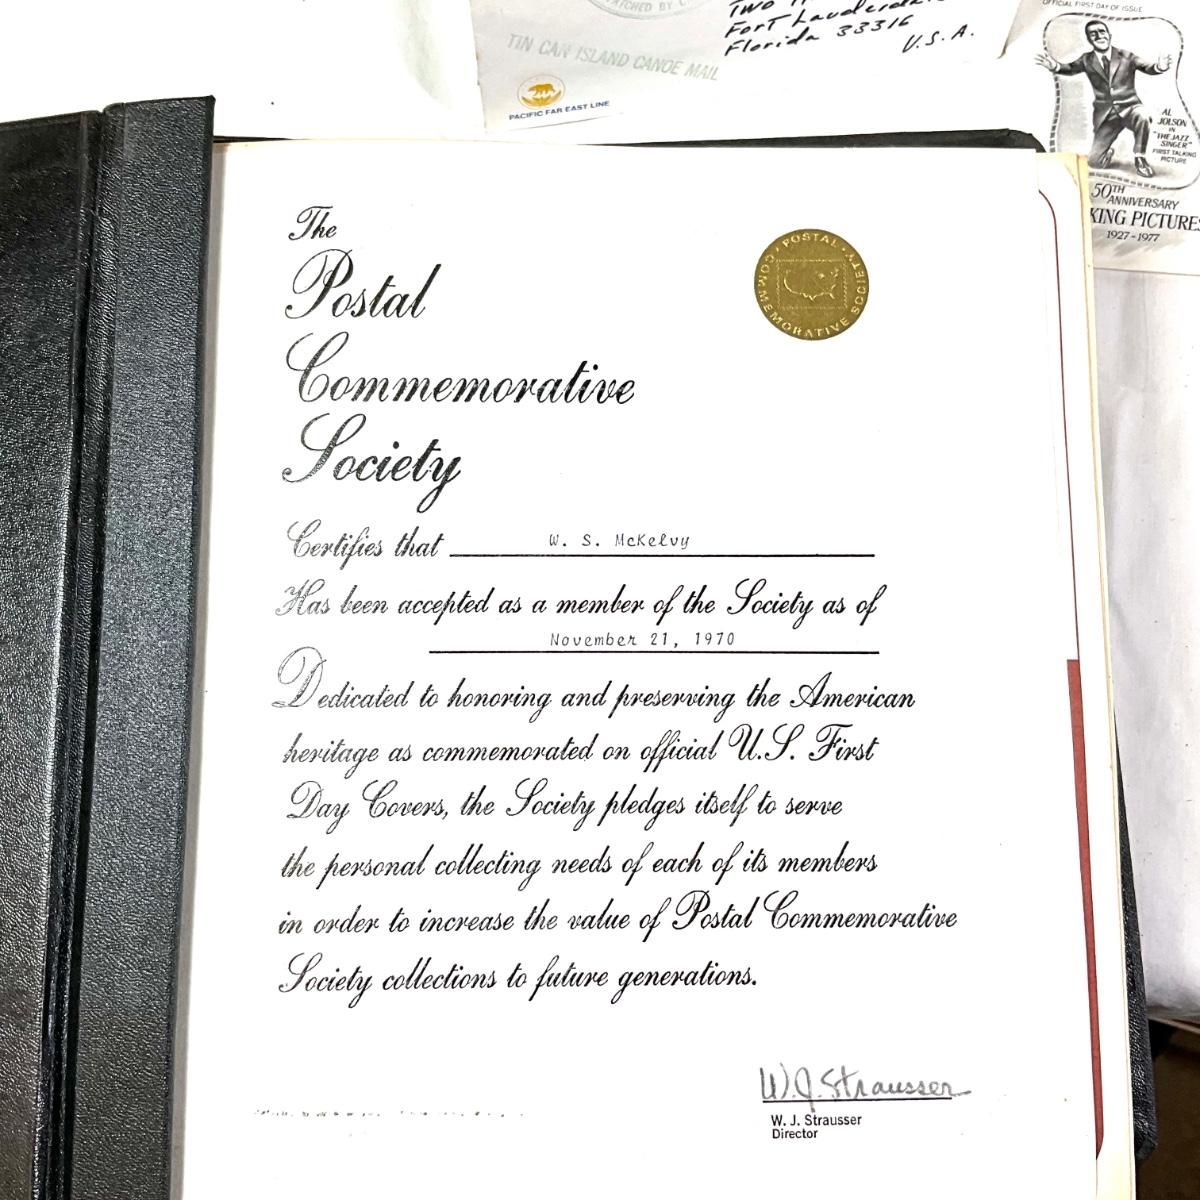 TIN CAN ISLAND CANOE MAIL
PACIFIC FAR EAST LINE
TWO
Fort Lauderdale
Florida 33316
U.S.A.
OFFICIAL FIRST DAY OF ISSUE
AL
JOLSON
IN
"THE JAZZ
SINGER"
FIRST TALKING
PICTURE
50TH
ANNIVERSARY
KING PICTURES
1927-1977
The
Postal
Commemorative
Society
· POSTAL ·
COMMEMORATIVE SOCIETY
Certifies that W. S. McKelvy
Has been accepted as a member of the Society as of
November 21, 1970
Dedicated to honoring and preserving the American
heritage as commemorated on official U.S. First
Day Covers, the Society pledges itself to serve
the personal collecting needs of each of its members
in order to increase the value of Postal Commemorative
Society collections to future generations.
W.J. Strausser
W. J. Strausser
Director